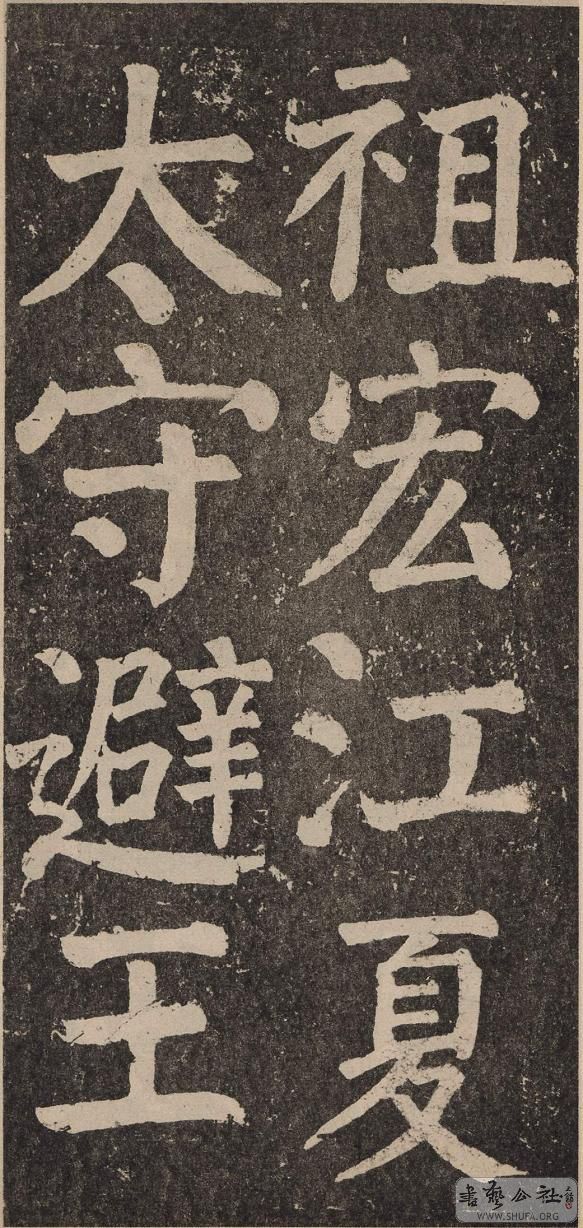 祖宏江夏
太守避王
書藝公社
WWW.SHUFA.ORG